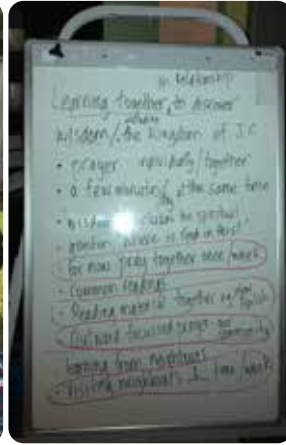 in relationship
Learning together, to discover
where
wisdom/the kingdom of J.C
• prayer together
• a few minutes at the same time
• wisdom the spiritual
• question "where is God in this?"
• for now pray together once/week
• Common readings
• Reading material together eg
• Outward focussed prayer - our community
• learning from neighbours
• Visiting neighbours 1 time/week